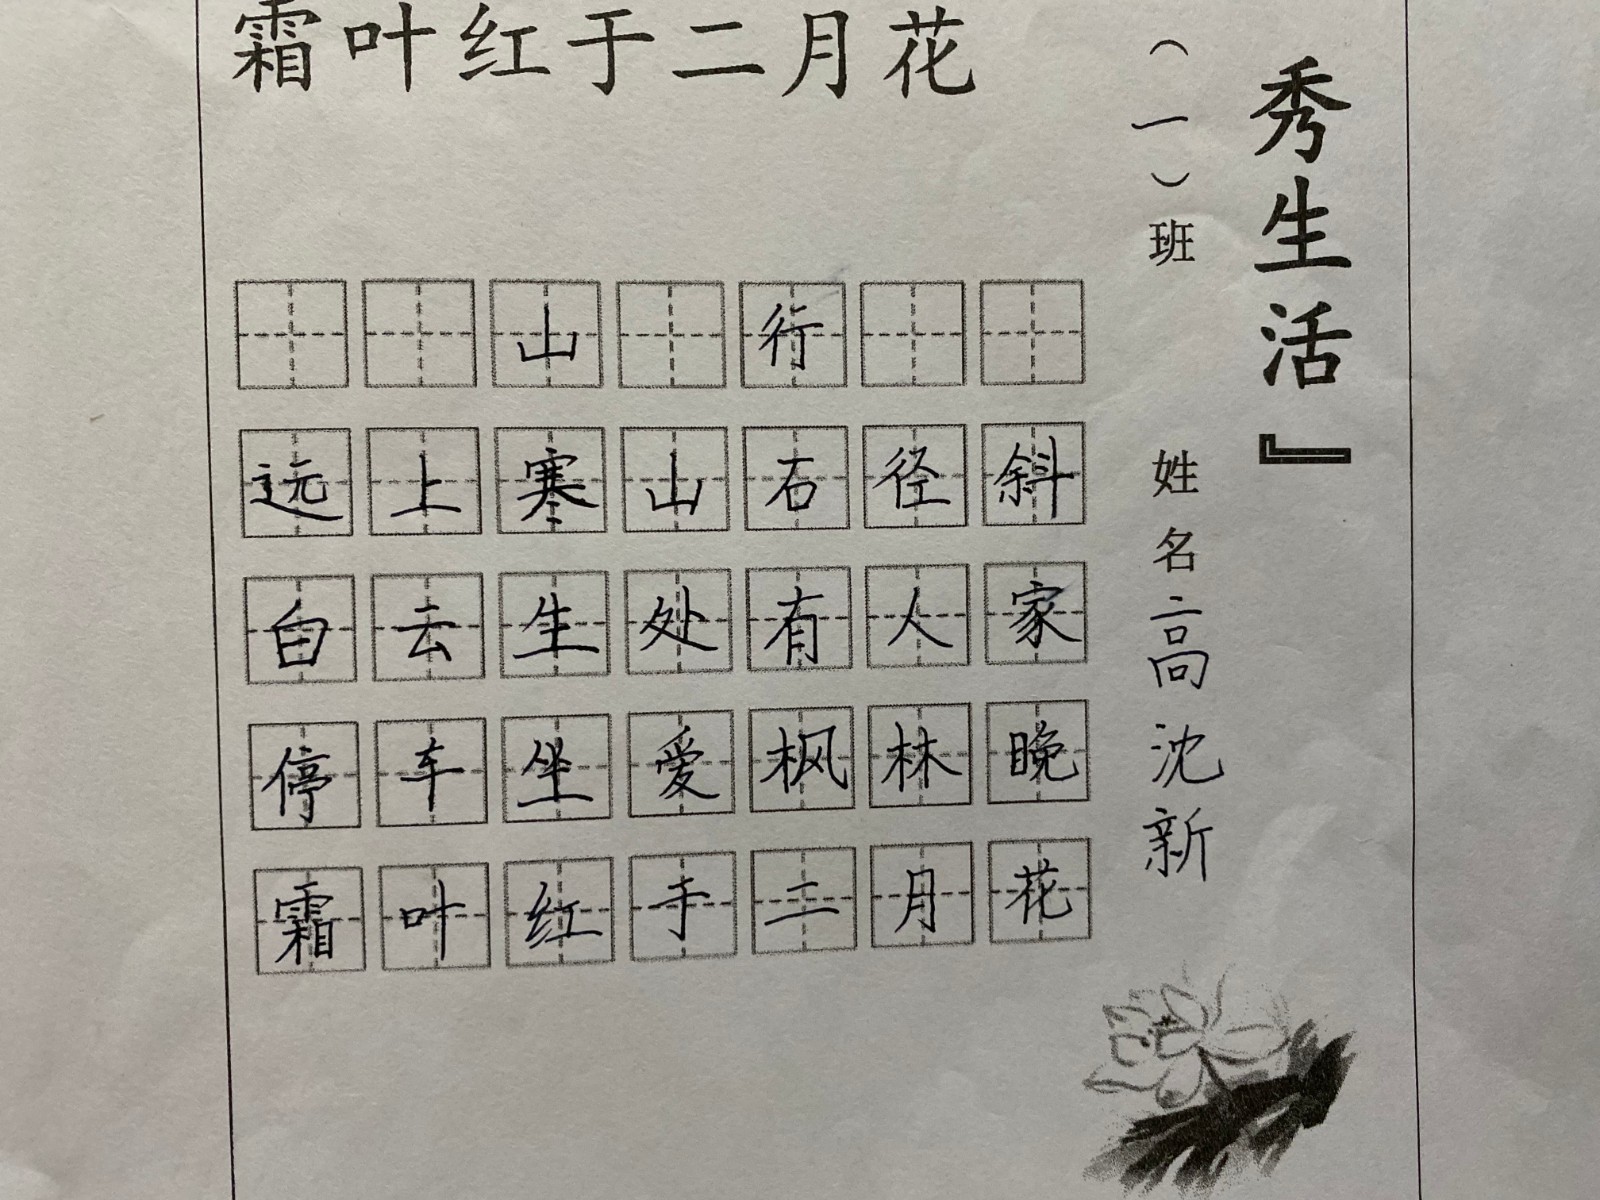 霜叶红于二月花
山行
远上寒山石径斜
白云生处有人家
停车坐爱枫林晚
霜叶红于二月花
(一)班 姓名高沈新
秀生活』